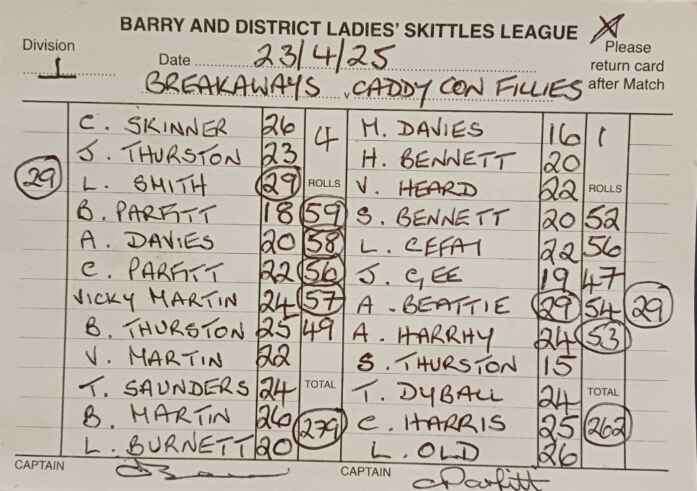 BARRY AND DISTRICT LADIES' SKITTLES LEAGUE
Division 1 Date 23/4/25 Please return card after Match
BREAKAWAYS v CADDY CON FILLIES
C. SKINNER 26 4 M. DAVIES 16 1
J. THURSTON 23 H. BENNETT 20
29 L. SMITH 29 ROLLS V. HEARD 22 ROLLS
B. PARFITT 18 59 S. BENNETT 20 52
A. DAVIES 20 58 L. CEFAI 22 56
C. PARFITT 22 56 J. GEE 19 47
VICKY MARTIN 24 57 A. BEATTIE 29 54 29
B. THURSTON 25 49 A. HARRHY 24 53
V. MARTIN 22 S. THURSTON 15
T. SAUNDERS 24 TOTAL T. DYBALL 24 TOTAL
B. MARTIN 26 279 C. HARRIS 25 262
L. BURNETT 20 L. OLD 26
CAPTAIN CAPTAIN CParfitt